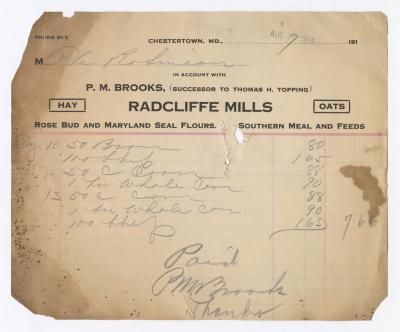 PHONE 81-2
CHESTERTOWN, MD., AUG 9 191
M Robinson
IN ACCOUNT WITH
P. M. BROOKS, (SUCCESSOR TO THOMAS H. TOPPING)
HAY RADCLIFFE MILLS OATS
ROSE BUD AND MARYLAND SEAL FLOURS. SOUTHERN MEAL AND FEEDS
Aug 10 50 Bran 80
100 Ship 165
50 C Corn 88
1 Bu Whole Corn 90
13 50 C Corn 88
1 Bu Whole Corn 90
100 Ship 165 766
Paid
P M Brooks
Thanks